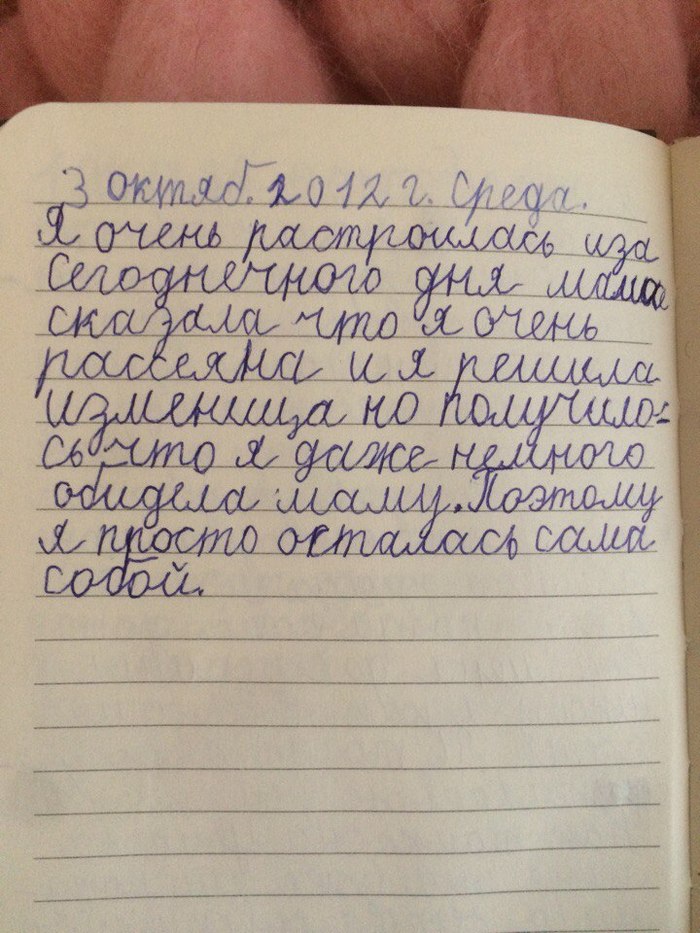 3 октяб. 2012 г. Среда.
Я очень растроилась иза
Сегоднечного дня мама
сказала что я очень
рассеяна и я решила
изменица но получило-
сь что я даже немного
обидела маму. Поэтому
я просто осталась сама
собой.